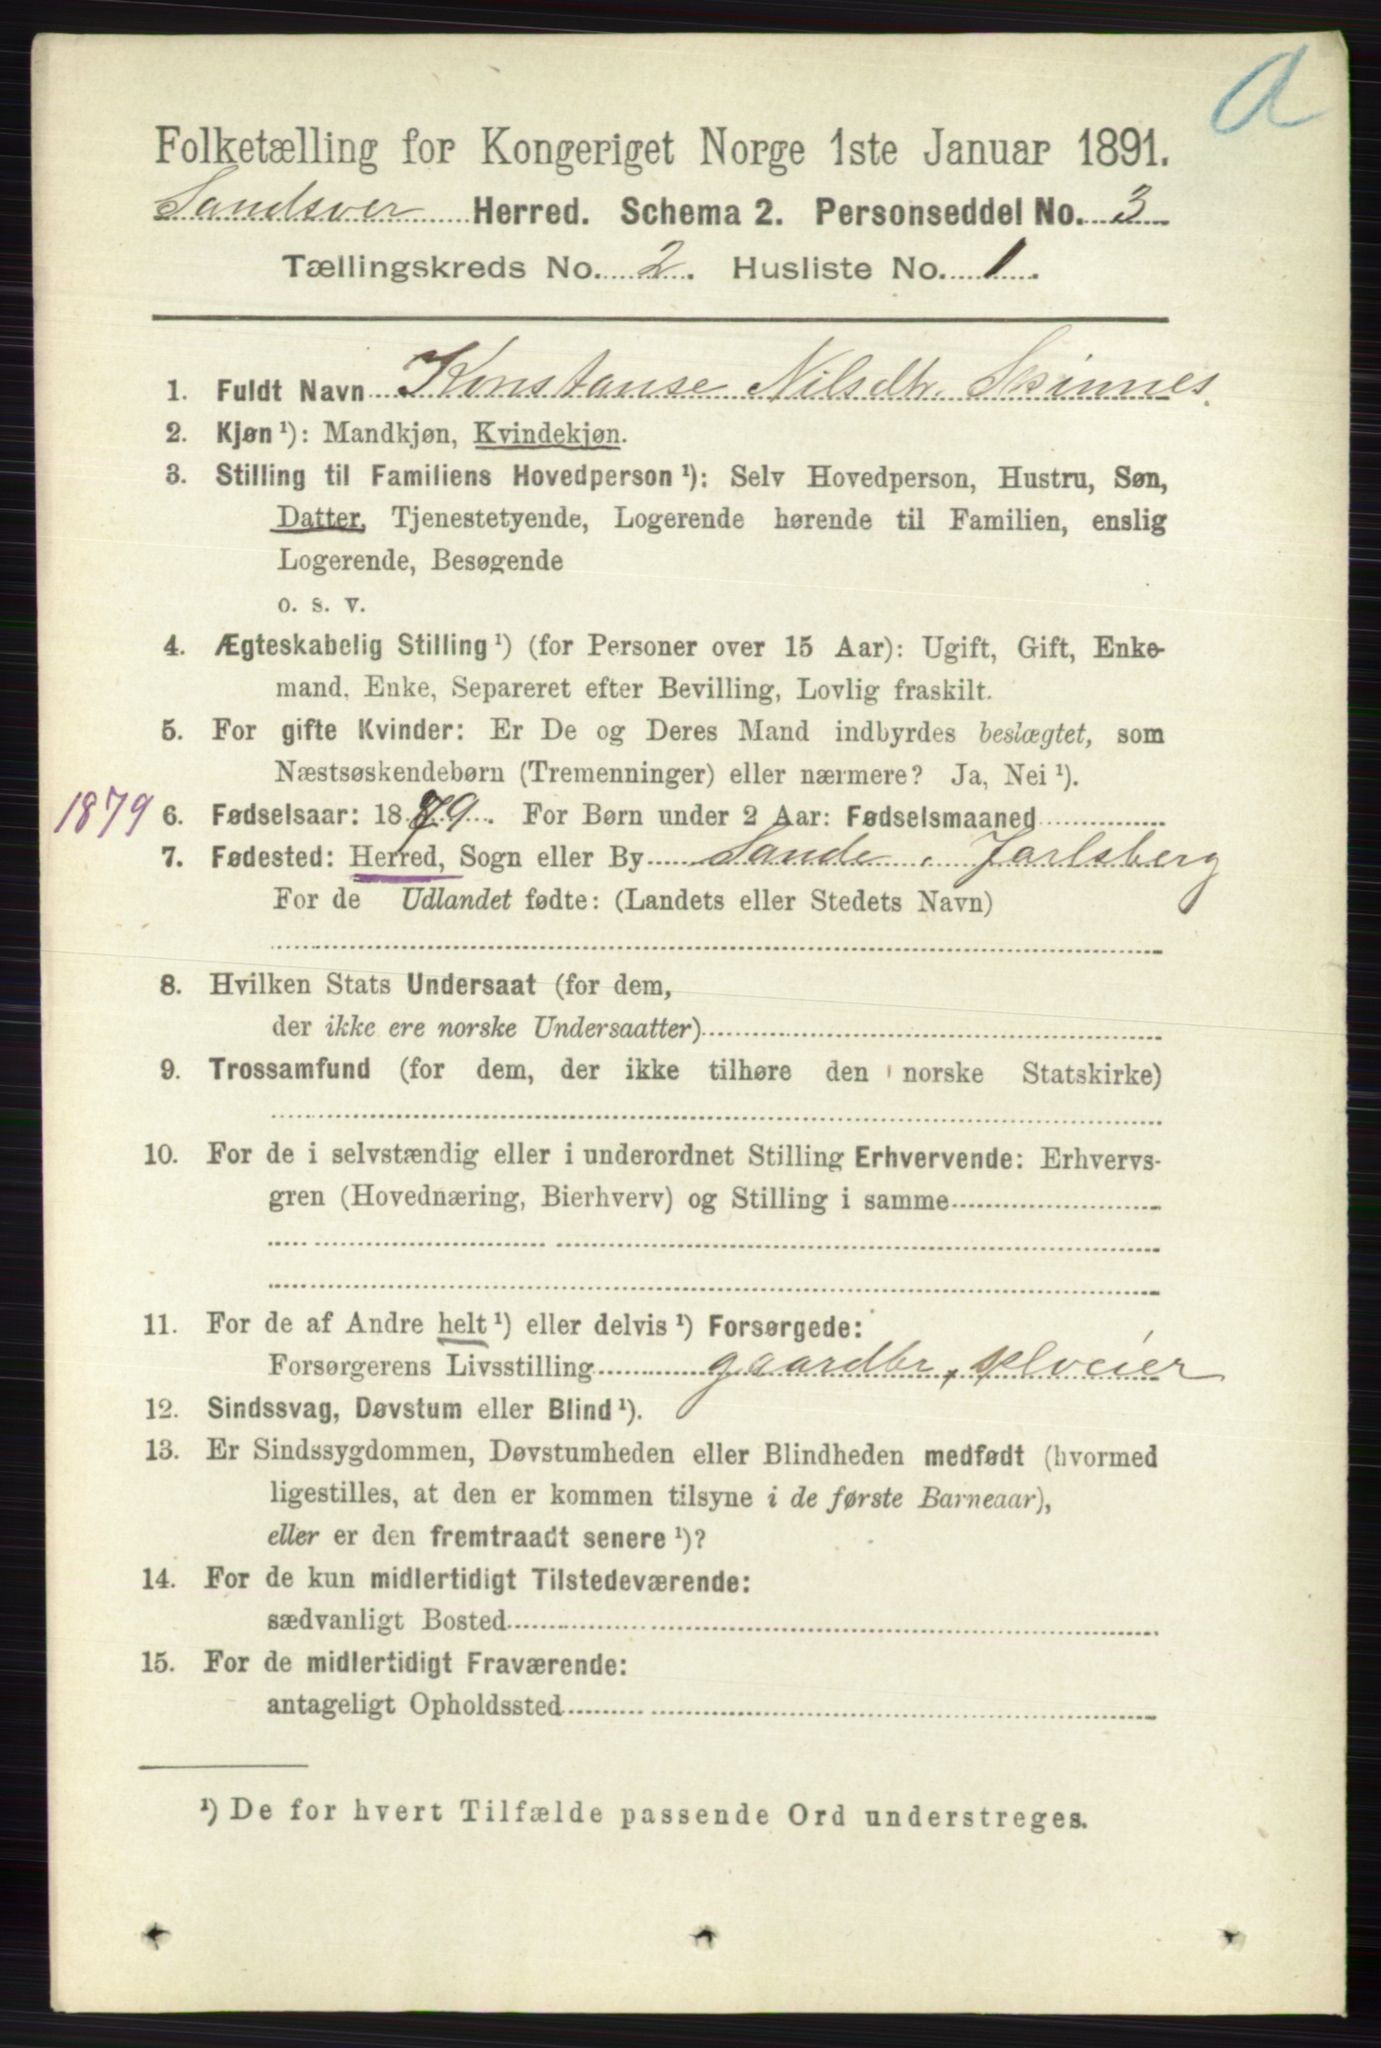 a
Folketælling for Kongeriget Norge 1ste Januar 1891.
Sandsver Herred. Schema 2. Personseddel No. 3
Tællingskreds No. 2. Husliste No. 1.
1. Fuldt Navn Konstanse Nilsdtr. Skinnes.
2. Kjøn ¹): Mandkjøn, Kvindekjøn.
3. Stilling til Familiens Hovedperson ¹): Selv Hovedperson, Hustru, Søn,
Datter, Tjenestetyende, Logerende hørende til Familien, enslig
Logerende, Besøgende
o. s. v.
4. Ægteskabelig Stilling ¹) (for Personer over 15 Aar): Ugift, Gift, Enke-
mand, Enke, Separeret efter Bevilling, Lovlig fraskilt.
5. For gifte Kvinder: Er De og Deres Mand indbyrdes beslægtet, som
Næstsøskendebørn (Tremenninger) eller nærmere? Ja, Nei ¹).
1879 6. Fødselsaar: 1879. For Børn under 2 Aar: Fødselsmaaned
7. Fødested: Herred, Sogn eller By Sande, Jarlsberg
For de Udlandet fødte: (Landets eller Stedets Navn)
8. Hvilken Stats Undersaat (for dem,
der ikke ere norske Undersaatter)
9. Trossamfund (for dem, der ikke tilhøre den norske Statskirke)
10. For de i selvstændig eller i underordnet Stilling Erhvervende: Erhvervs-
gren (Hovednæring, Bierhverv) og Stilling i samme
11. For de af Andre helt ¹) eller delvis ¹) Forsørgede:
Forsørgerens Livsstilling gaardbr, selveier
12. Sindssvag, Døvstum eller Blind ¹).
13. Er Sindssygdommen, Døvstumheden eller Blindheden medfødt (hvormed
ligestilles, at den er kommen tilsyne i de første Barneaar),
eller er den fremtraadt senere ¹)?
14. For de kun midlertidigt Tilstedeværende:
sædvanligt Bosted
15. For de midlertidigt Fraværende:
antageligt Opholdssted
¹) De for hvert Tilfælde passende Ord understreges.